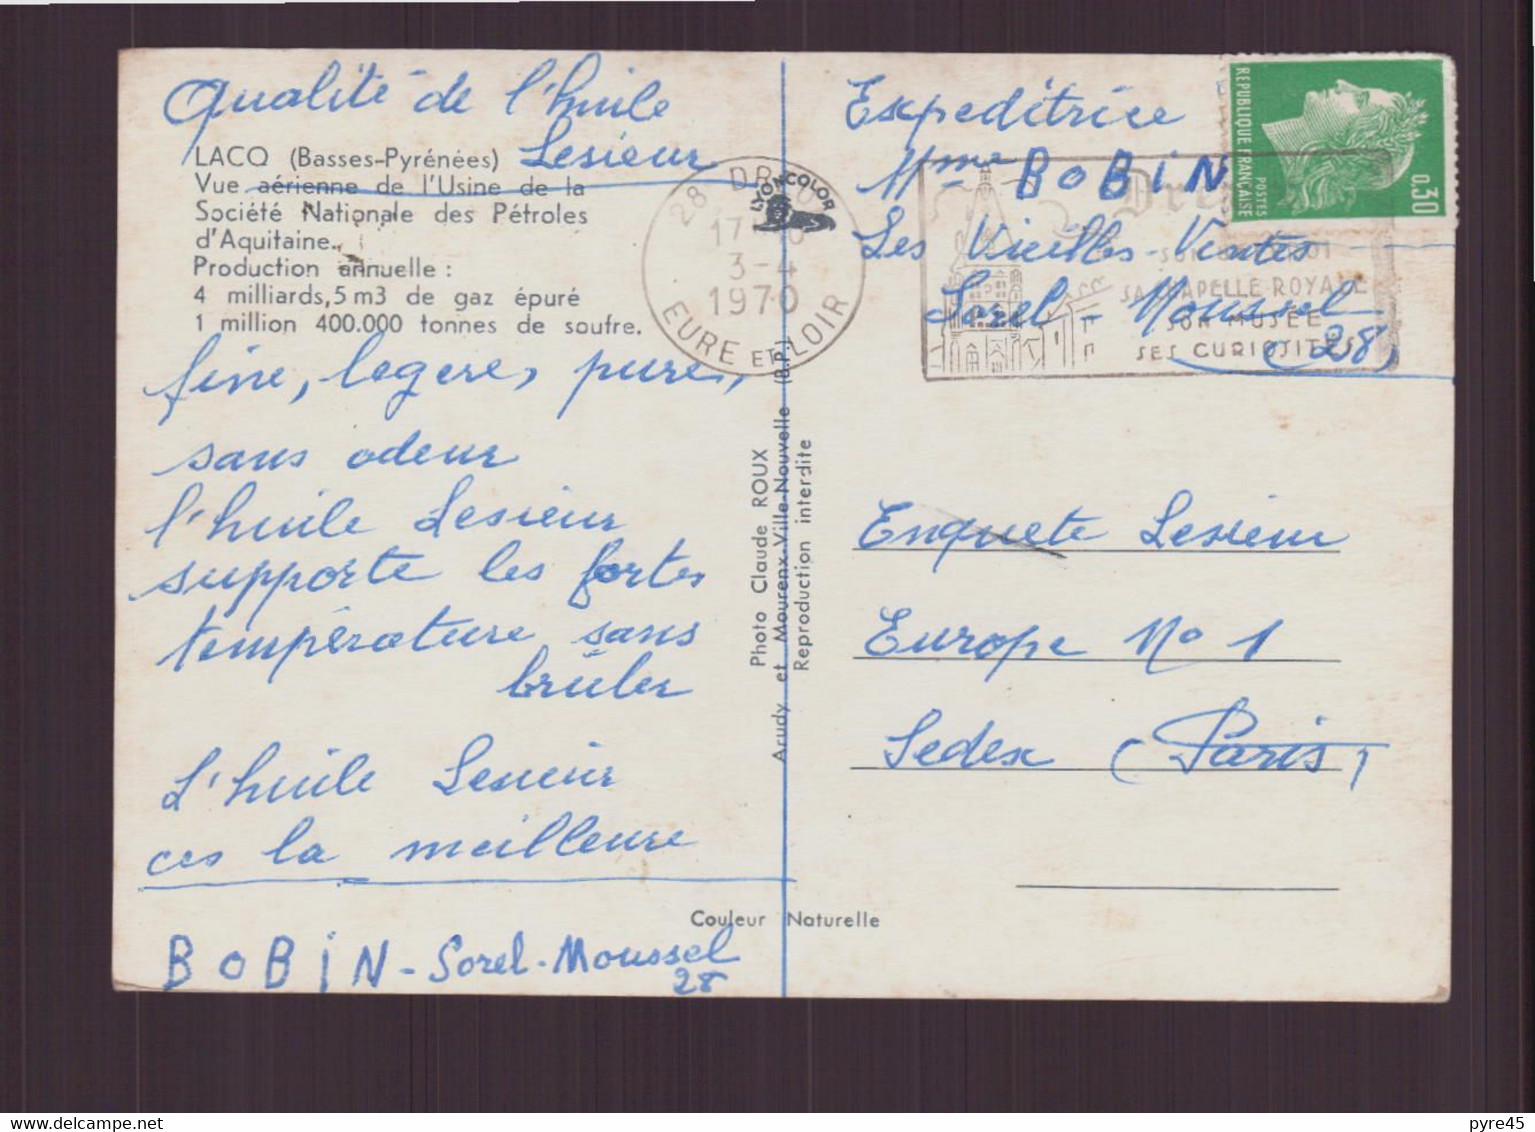 Qualité de l'huile
Lesieur
LACQ (Basses-Pyrénées)
Vue aérienne de l'Usine de la
Société Nationale des Pétroles
d'Aquitaine.
Production annuelle :
4 milliards,5 m3 de gaz épuré
1 million 400.000 tonnes de soufre.
fine, legere, pure,
sans odeur
l'huile Lesieur
supporte les fortes
température sans
brûler
L'huile Lesieur
ces la meilleure
BoBiN - Sorel-Moussel
28
Couleur Naturelle
Photo Claude ROUX
Arudy et Mourenx-Ville-Nouvelle (B.P.)
Reproduction interdite
LYONCOLOR
28
3-4
1970
EURE ET LOIR
SON MUSÉE
SES CURIOSITÉS
CHAPELLE ROYALE
REPUBLIQUE FRANÇAISE
POSTES
0,30
Expeditrice
Mme BoBiN
Les Vieilles-Ventes
Sorel-Moussel
(28)
Enquete Lesieur
Europe No 1
Sedex (Paris)
pyre45